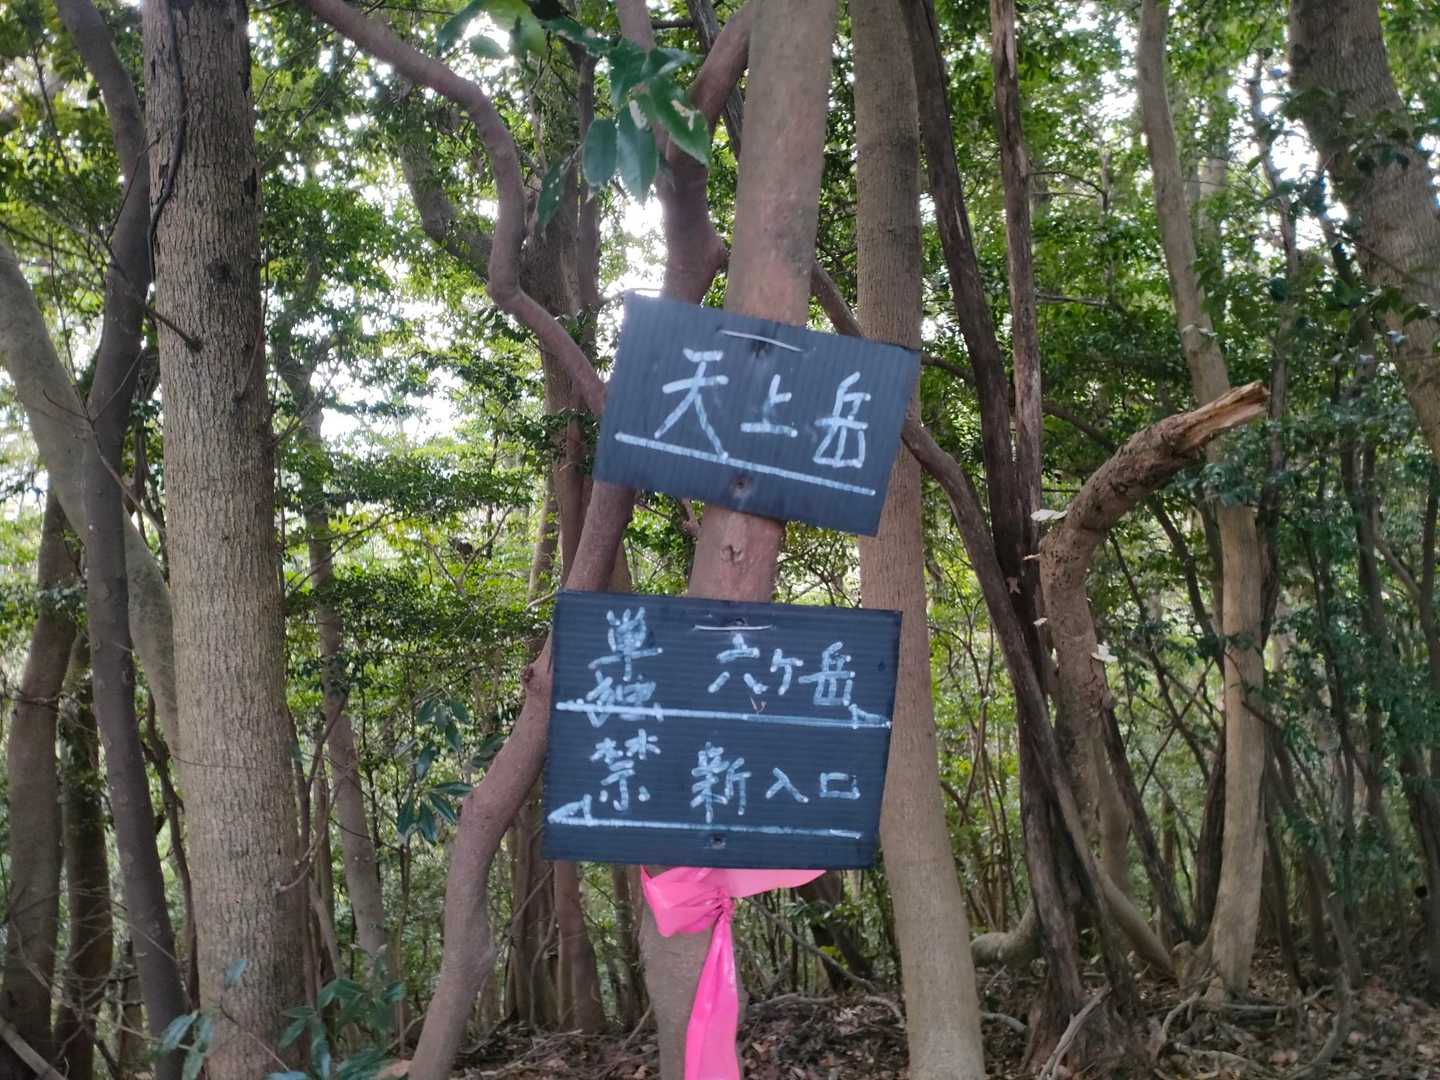 天上岳
単 六ヶ岳
禁 新入口